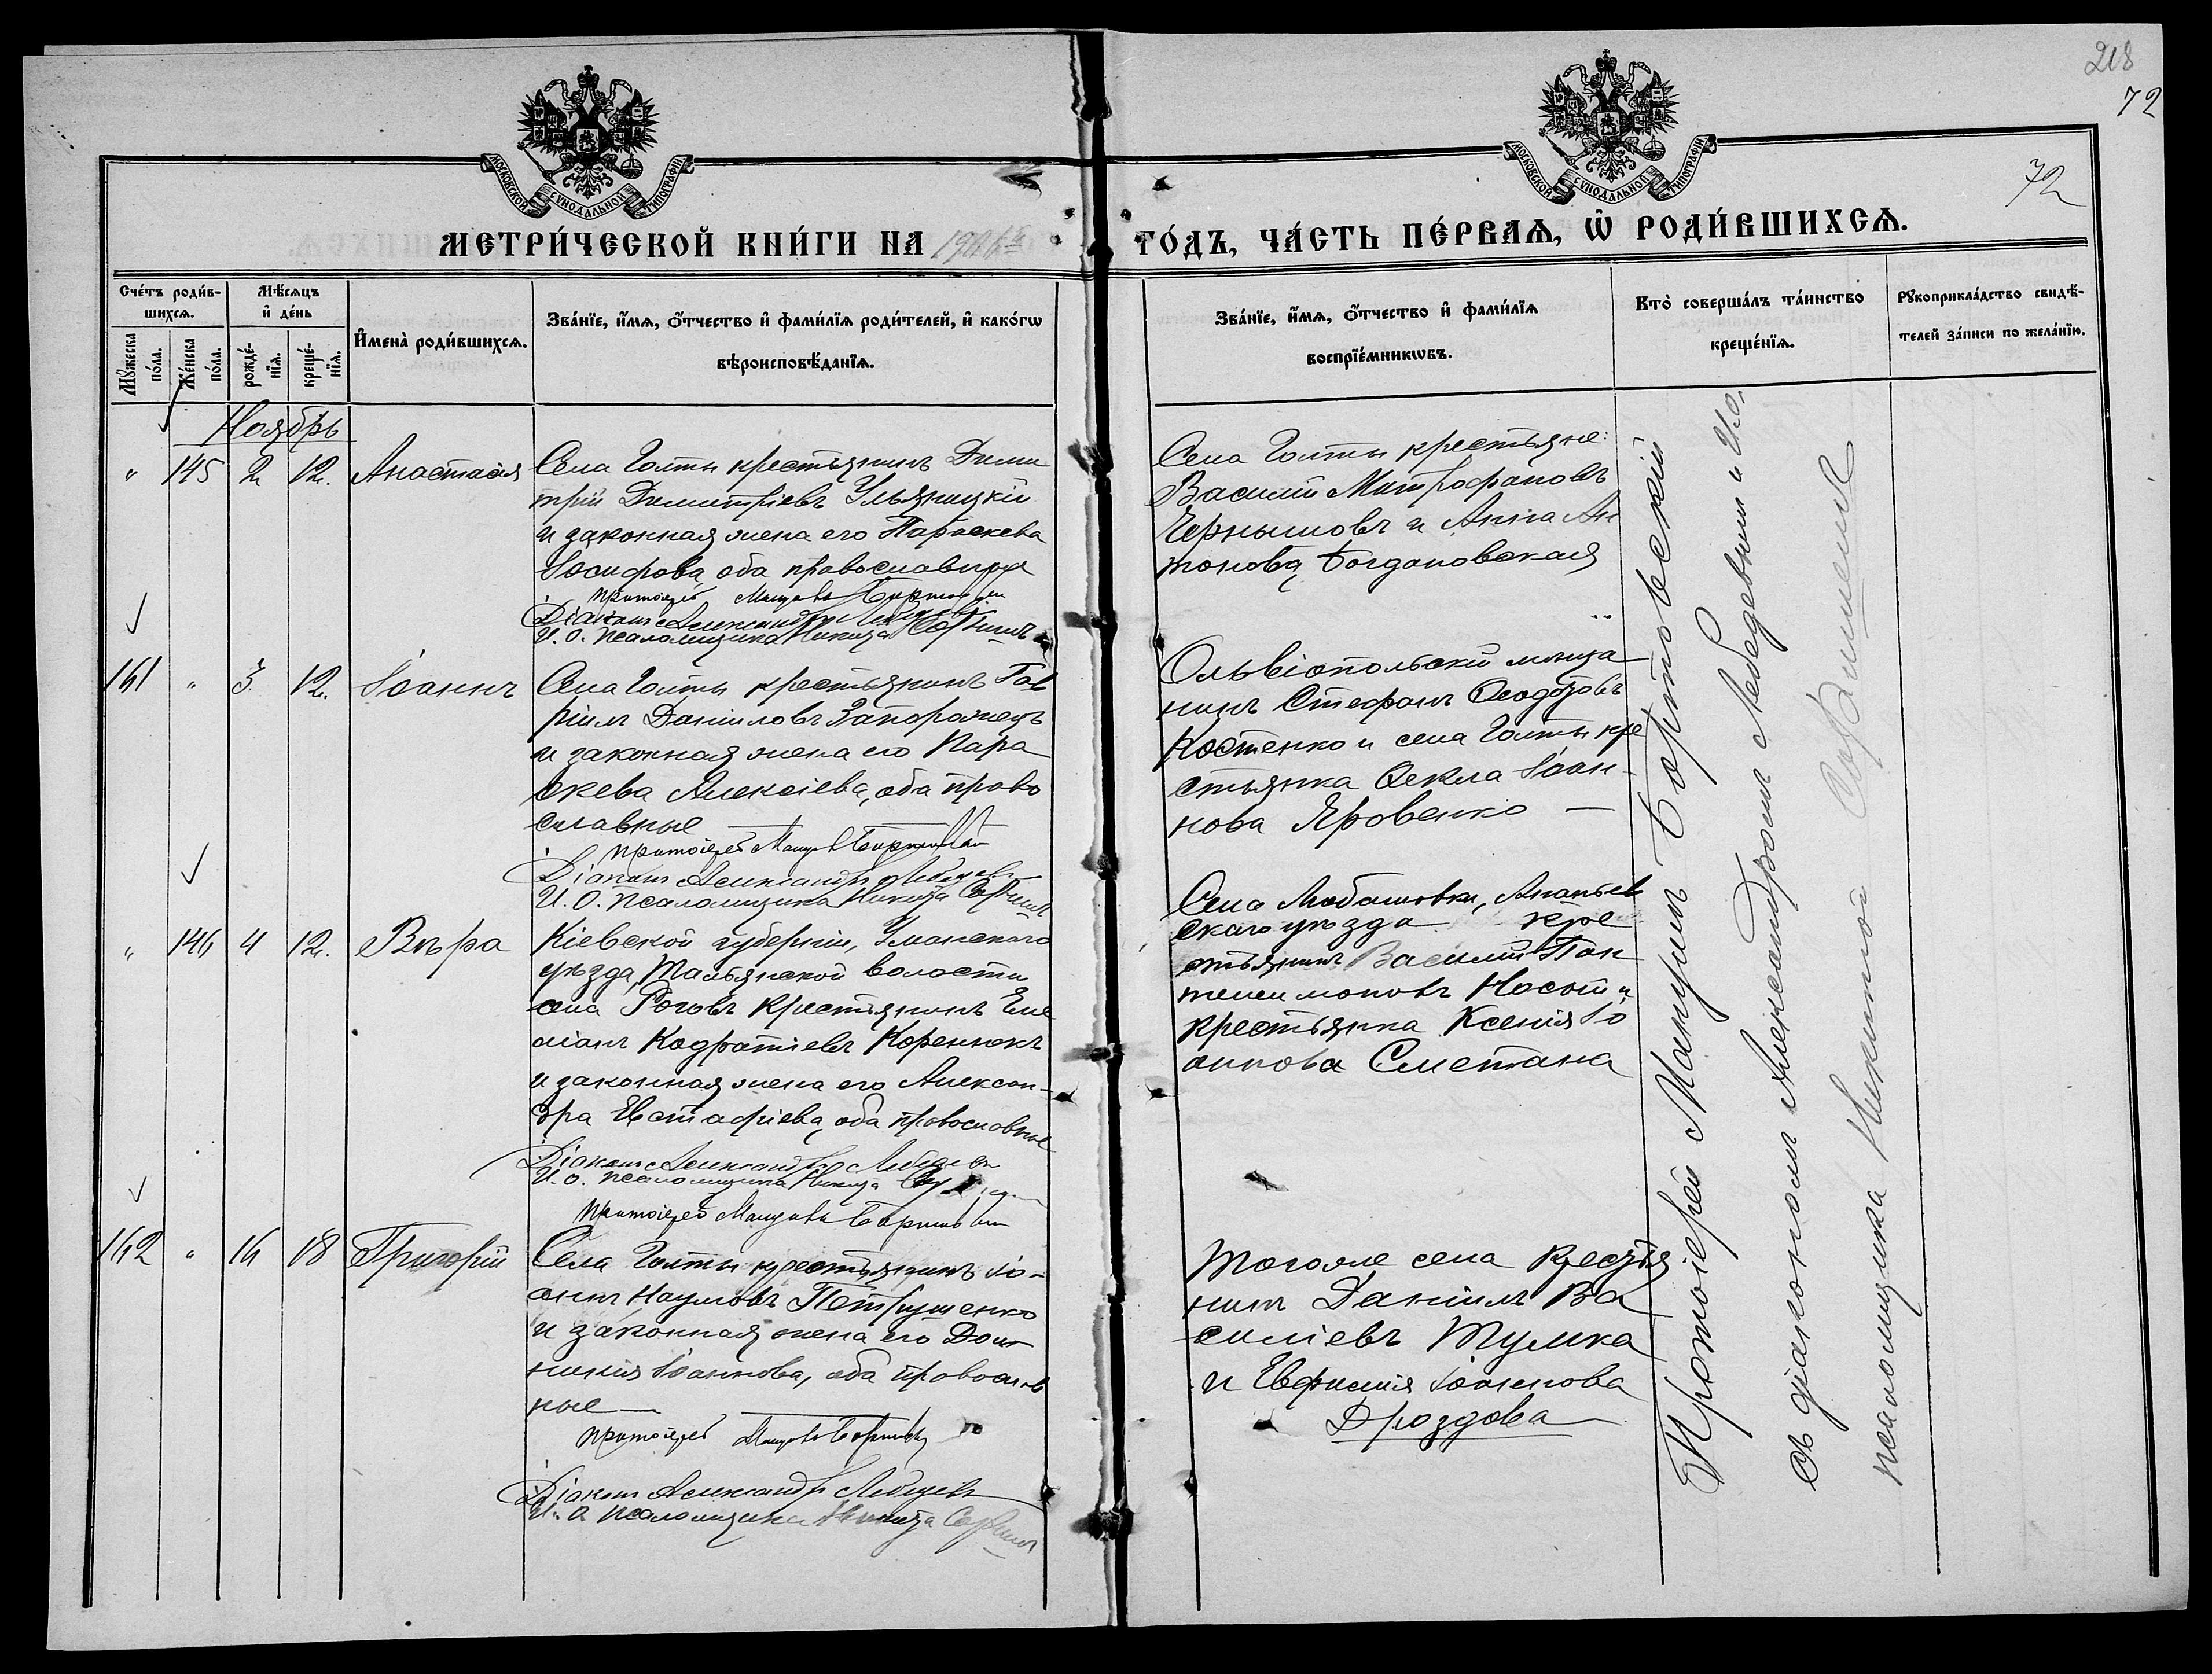 218
72
72
МОСКОВСКОЙ СУНОДАЛЬНОЙ ТИПОГРАФІИ
МОСКОВСКОЙ СУНОДАЛЬНОЙ ТИПОГРАФІИ
МЕТРИ́ЧЕСКОЙ КНИ́ГИ НА
ГО́ДЪ, ЧА́СТЬ ПЕ́РВАѦ, Ѡ҆ РОДИ́ВШИХСѦ.
Сче́тъ роди́в-
шихсѧ.
Мꙋ́жеска по́ла.
Же́нска по́ла.
Мѣ́сѧцъ
и҆ де́нь
рожде́-
нїѧ.
креще́-
нїѧ.
И҆мена̀ роди́вшихсѧ.
Зва́нїе, и҆́мѧ, ѻ҆́тчество и҆ фами́лїѧ роди́телей, и҆ како́гѡ
вѣроисповѣ́данїѧ.
Зва́нїе, и҆́мѧ, ѻ҆́тчество и҆ фами́лїѧ
воспрїе́мникѡвъ.
Кто̀ соверша́лъ та́инство
креще́нїѧ.
Рꙋкоприкла́дство свидѣ́-
телей за́писи по жела́нїю.
Ноябрь
" 145 2 12. Анастасія
Села Голты крестьянинъ Дими
трій Димитріевъ Ульяницкій
и законная жена его Параскева
Іосифова, оба православные
Протоіерей
Діаконъ Александръ Лебедевъ
И. О. псаломщика Никита
Села Голты крестьяне:
Василій Митрофановъ
Чернышовъ и Анна Ан
тонова Богдановская
161 " 3 12. Іоаннъ
Села Голты крестьянинъ Гав
ріилъ Даніиловъ Запорожецъ
и законная жена его Пара
скева Алексіева, оба право
славные
Протоіерей
Діаконъ Александръ Лебедевъ
И. О. псаломщика Никита
Ольвіопольскій мѣща
нинъ Стефанъ Ѳеодотовъ
Костенко и села Голты кре
стьянка Ѳекла Іоан-
нова Яровенко
" 146 4 12. Вѣра
Кіевской губерніи, Уманскаго
уѣзда, Тальянской волости
села Роговъ крестьянинъ Еме
ліанъ Кодратіевъ Коренюкъ
и законная жена его Алексан-
дра Евстафіева, оба православные
Діаконъ Александръ Лебедевъ
И. О. псаломщика Никита
Протоіерей
Села Любашовки, Ананьев
скаго уѣзда кре
стьянинъ Василій Пан
телеимоновъ и
крестьянка Ксенія Іо
аннова Сметана
162 " 16 18 Григорій
Села Голты крестьянинъ Іо-
аннъ Наумовъ Петрушенко
и законная жена его Дом
никія Іоаннова, оба православ
ные
Протоіерей
Діаконъ Александръ Лебедевъ
И. О. псаломщика Никита
Тогоже села крестья
нинъ Даніилъ Ва
силіевъ Тулика
и Евфимія Іоаннова
Дроздова
Протоіерей
съ діакономъ Александромъ Лебедевымъ и И. О.
псаломщика Никитой